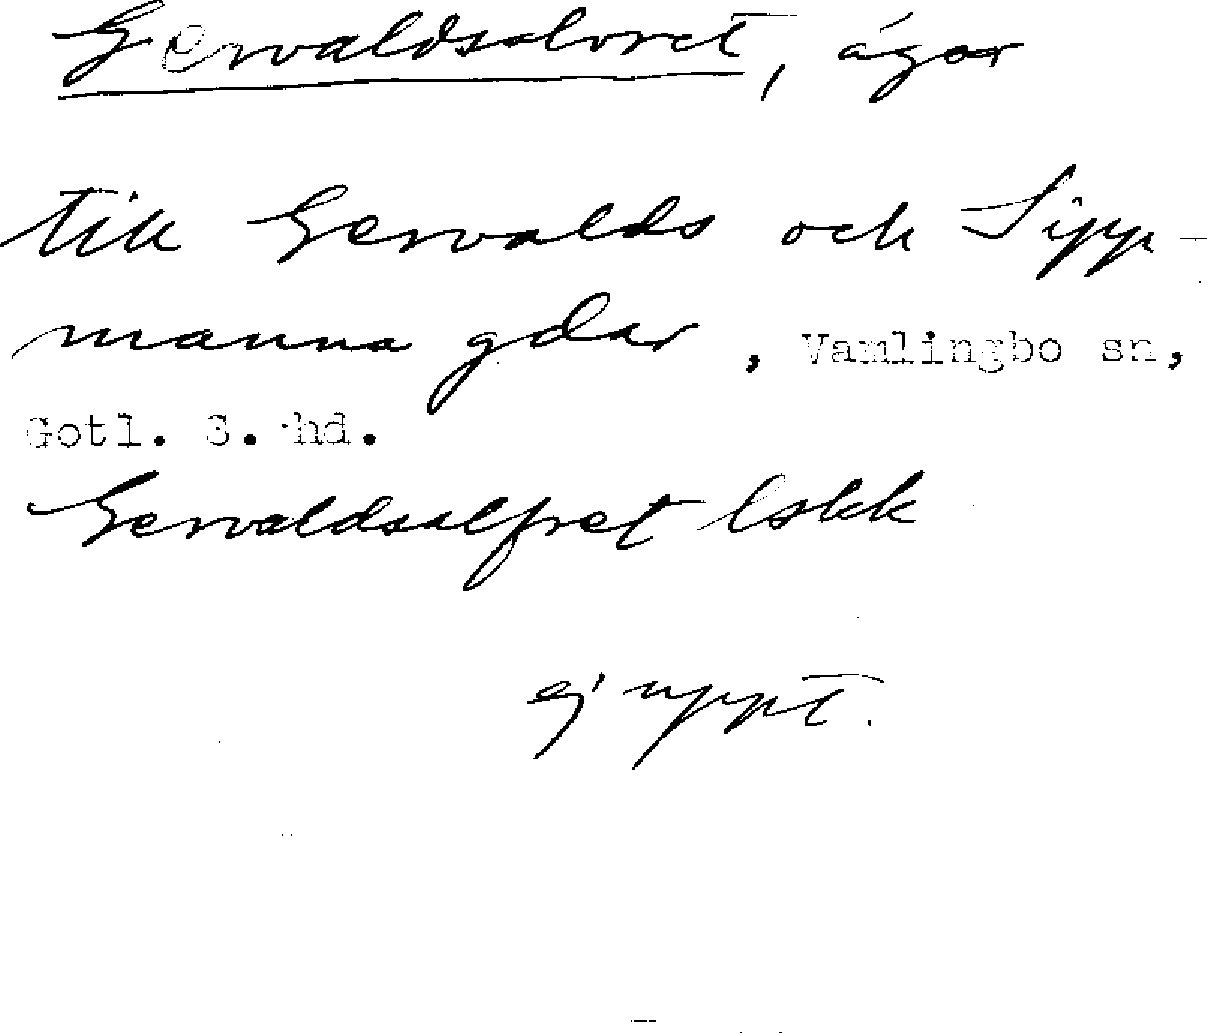 Gervaldsalvret, ägor
till Gervalds och Sipp-
manna gdar, Vamlingbo sn,
Gotl. S. hd.
Gervaldsalfret Lskk
ej uppt.